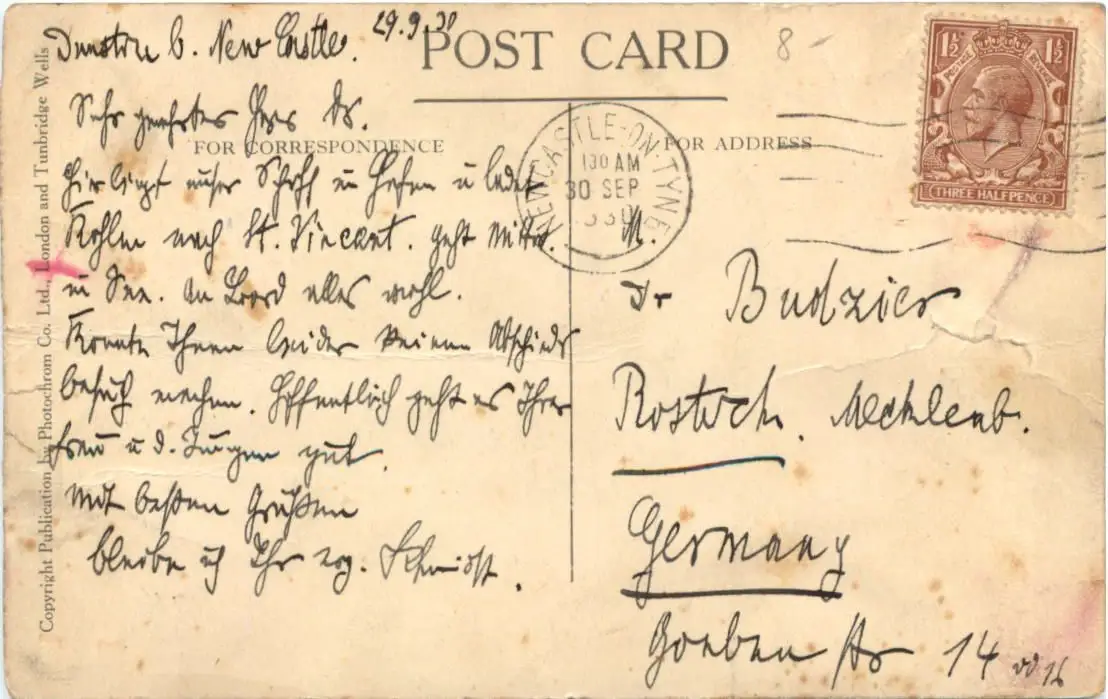 Dunston b. New Castle. 29.9.30
POST CARD
8
Sehr geehrter Herr Dr.
FOR CORRESPONDENCE
FOR ADDRESS
hier liegt unser Schiff im Hafen u ladet
Kohlen nach St. Vincent. geht Mittw.
in See. An Bord alles wohl.
Konnte Ihnen leider keinen Abschieds
besuch machen. Hoffentlich geht es Ihrer
Frau u d. Jungen gut.
Mit besten Grüßen
bleibe ich Ihr erg.
Dr Budzier
Rostock. Mecklenb.
Germany
Goeben Str 14 od 16
NEWCASTLE-ON-TYNE
130 AM
30 SEP
1930
1½ 1½
POSTAGE REVENUE
THREE HALFPENCE
Copyright Publication by Photochrom Co. Ltd., London and Tunbridge Wells